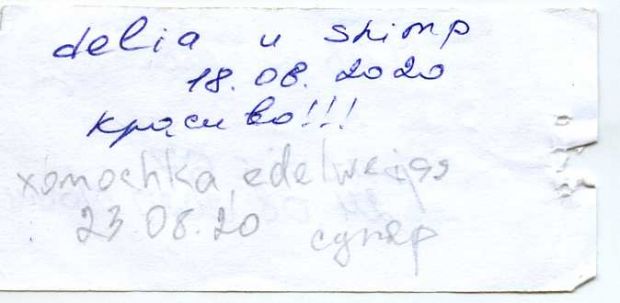 delia и shimp
18.08.2020
красиво!!!
xomochka, edelweiss
23.08.20 супер